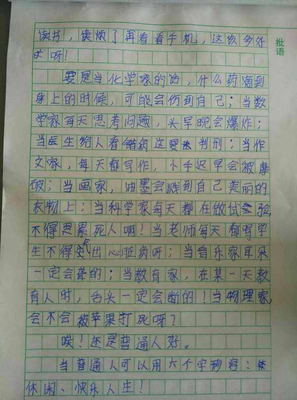 读书，读烦了再看看手机，这该多好
呀！
要是当化学家的话，什么药滴到
身上的时候，可能会伤到自己；当数
学家每天思考问题，头早晚会爆炸；
当医生给人看错病还要被判刑；当作
文家，每天都写作，卜手迟早会被磨
破；当画家，油墨会溅到自己美丽的
衣物上；当科学家每天都在做试验
不得要累死人啊！当老师每天都有学
生不得气出心脏病呀；当音乐家耳朵
一定会聋的；当教育家，在某一天教
育人时，舌头一定会断的！当物理家
会不会被苹果打死呀？
唉！还是普通人好。
当普通人可以用六个字形容：
休闲、快乐人生！
批语